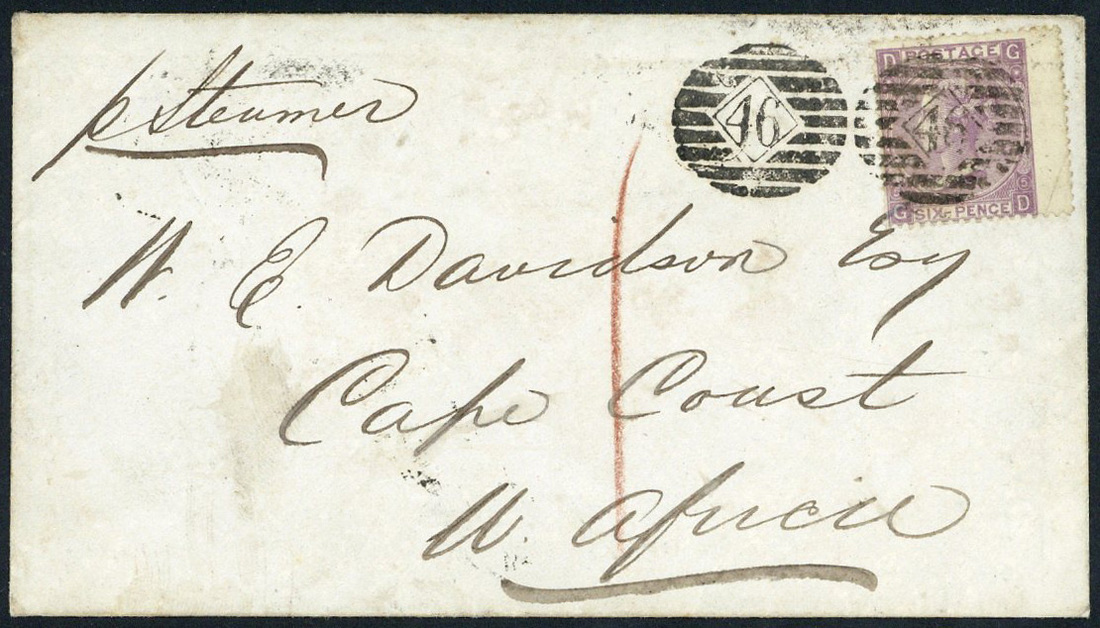 p Steamer
46
D POSTAGE G
46
G SIX-PENCE D
W. E. Davidson Esq
Cape Coast
W. Africa